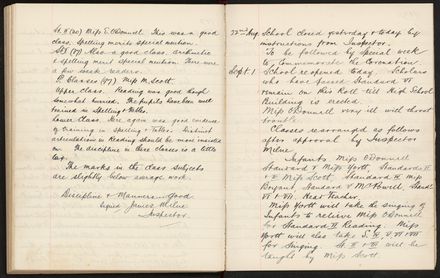 St. II (20) Miss E. O'Donnell. This was a good
class. Spelling merits special mention.
St I (17) Also a good class. Arithmetic
& spelling merit special mention. There were
a few weak readers.
P. Classes (47) Miss M. Scott.
Upper class. Reading was good though
somewhat hurried. The pupils have been well
trained in Spelling & Tables.
Lower Class. Here again was good evidence
of training in Spelling & Tables. Distinct
articulation in Reading should be more insisted
on. The discipline in these classes is a little
lax.
The marks in the class subjects
are slightly below average work.
Discipline & Manners - Good
Signed James Milne
Inspector.
22nd Aug. School closed yesterday & today by
instructions from Inspector.
To be followed by special week
to commemorate the Coronation
Sept. 1 School reopened today. Scholars
who have passed Standard VI
remain on this Roll till High School
Building is erected.
Miss O'Donnell very ill with throat
trouble
Classes rearranged as follows
after approval by Inspector
Milne
Infants Miss O'Donnell
Standard Miss Scott, Standard
Miss
Standard McDowell, Stand
VI & VII. Head Teacher.
Miss will take the singing of
Infants to relieve Miss O'Donnell
for Standard II Reading. Miss
will also take S.
for Singing. St. II & III will be
taught by Miss Scott.